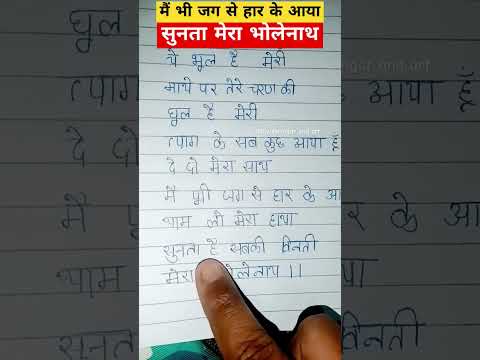 मैं भी जग से हार के आया
सुनता मेरा भोलेनाथ
ये भूल है मेरी
माथे पर तेरे चरण की
धूल है मेरी
त्याग के सब कुछ आया हूँ
दे दो मेरा साथ
मैं भी जग से हार के आ
थाम लो मेरा हाथ
सुनता है सबकी विनती
मेरा लेनाथ ।।